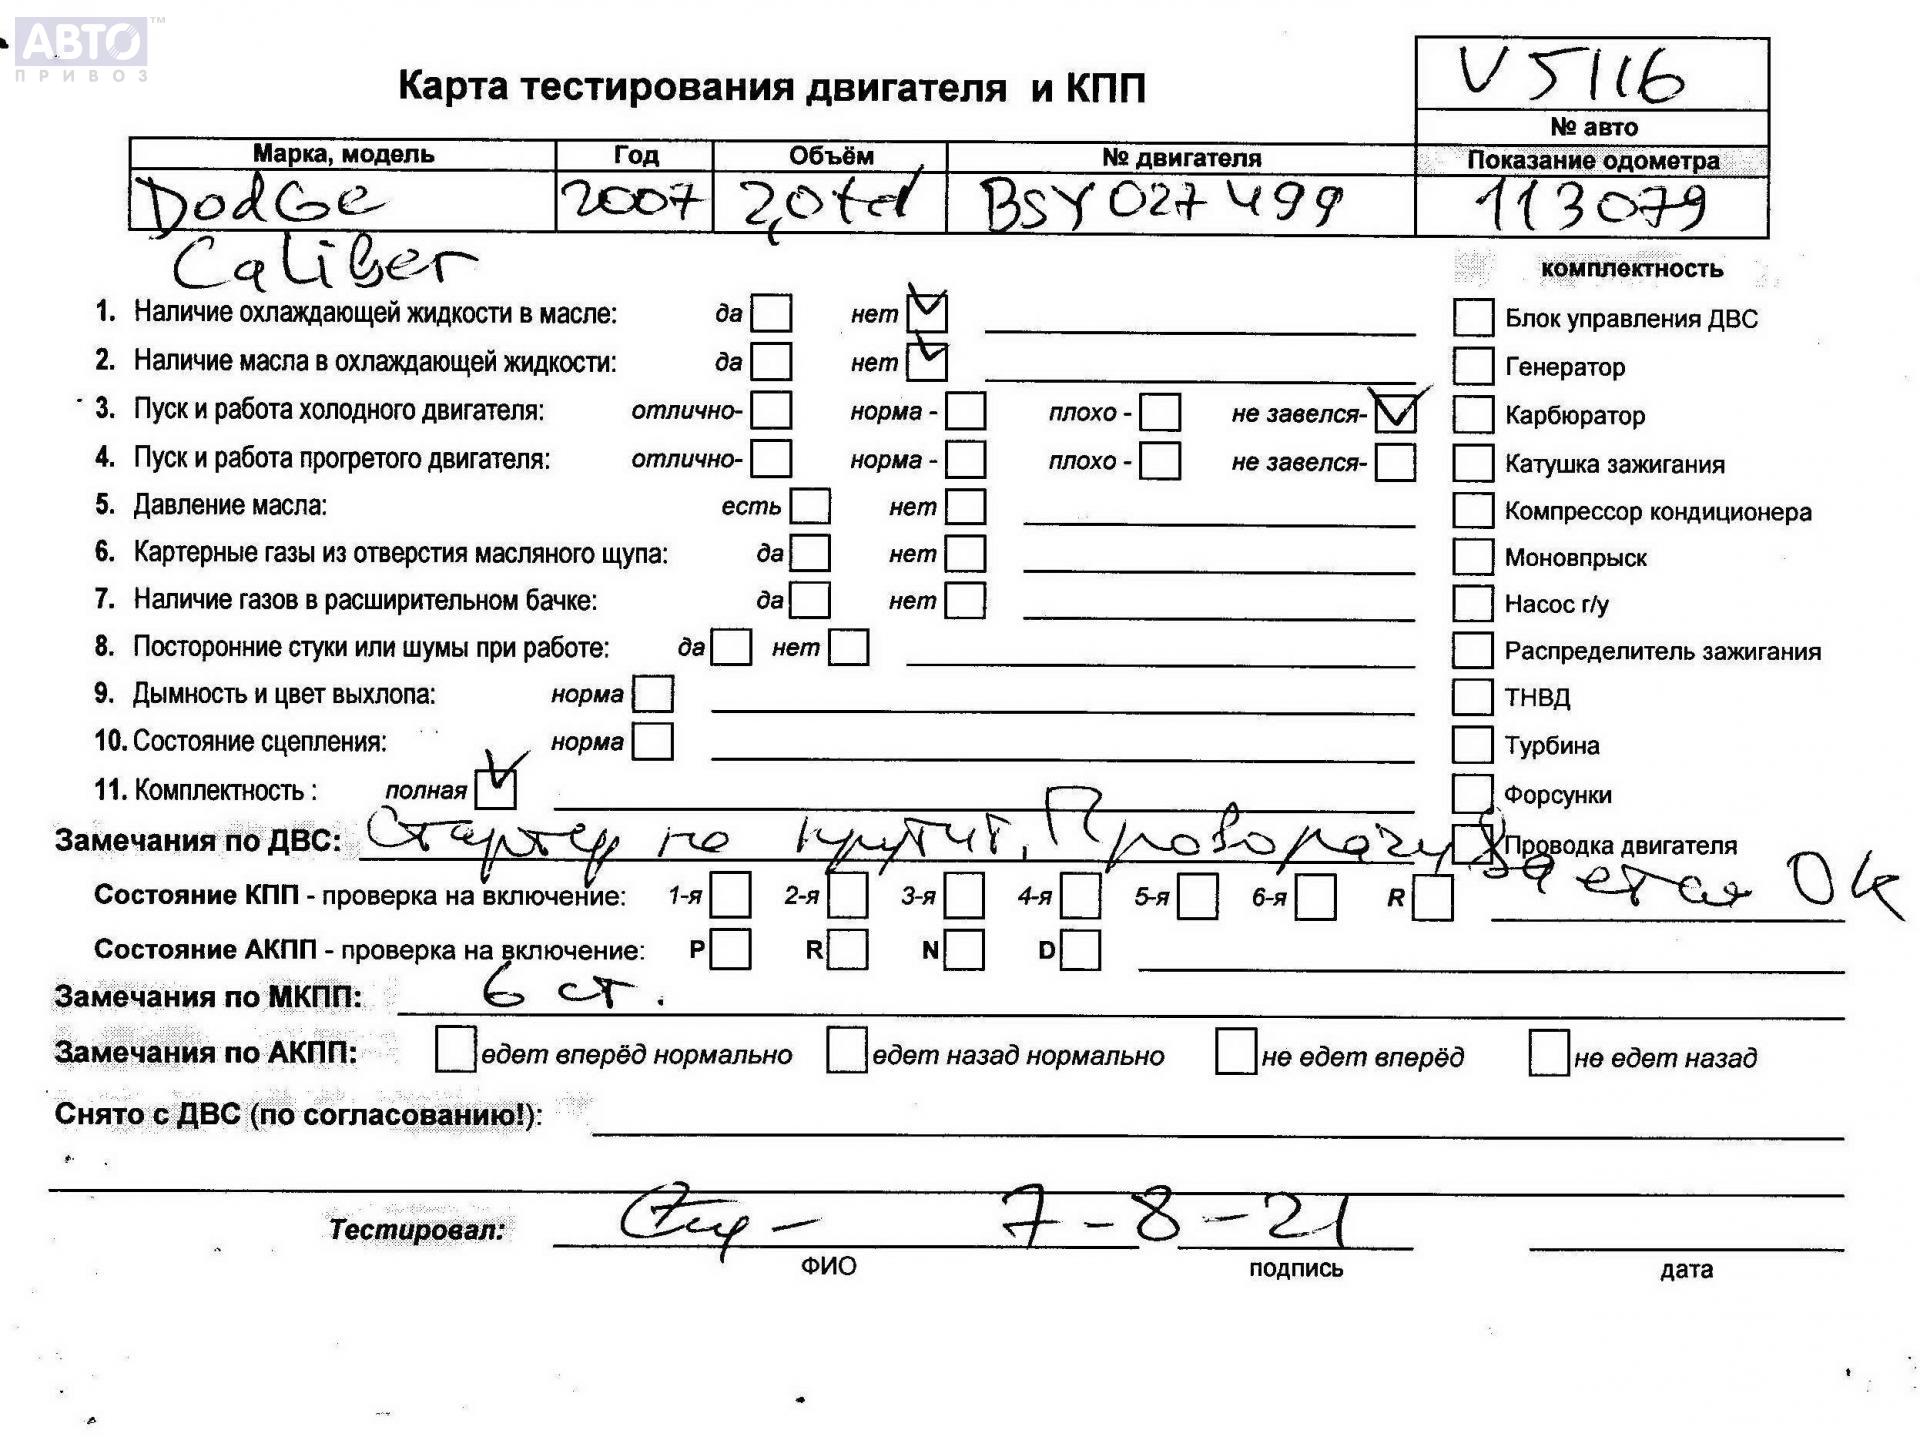 АВТО™
ПРИВОЗ
Карта тестирования двигателя и КПП
V5116
№ авто
Марка, модель Год Объём № двигателя Показание одометра
Dodge 2007 2,0td BSY027499 113079
Caliber
комплектность
1. Наличие охлаждающей жидкости в масле: да нет Блок управления ДВС
2. Наличие масла в охлаждающей жидкости: да нет Генератор
3. Пуск и работа холодного двигателя: отлично- норма - плохо - не завелся- Карбюратор
4. Пуск и работа прогретого двигателя: отлично- норма - плохо - не завелся- Катушка зажигания
5. Давление масла: есть нет Компрессор кондиционера
6. Картерные газы из отверстия масляного щупа: да нет Моновпрыск
7. Наличие газов в расширительном бачке: да нет Насос г/у
8. Посторонние стуки или шумы при работе: да нет Распределитель зажигания
9. Дымность и цвет выхлопа: норма ТНВД
10. Состояние сцепления: норма Турбина
11. Комплектность : полная Форсунки
Замечания по ДВС: Стартер не крутит. Проворачивается ОК Проводка двигателя
Состояние КПП - проверка на включение: 1-я 2-я 3-я 4-я 5-я 6-я R
Состояние АКПП - проверка на включение: P R N D
Замечания по МКПП: 6 ст.
Замечания по АКПП: едет вперёд нормально едет назад нормально не едет вперёд не едет назад
Снято с ДВС (по согласованию!):
Тестировал: 7-8-21
ФИО подпись дата